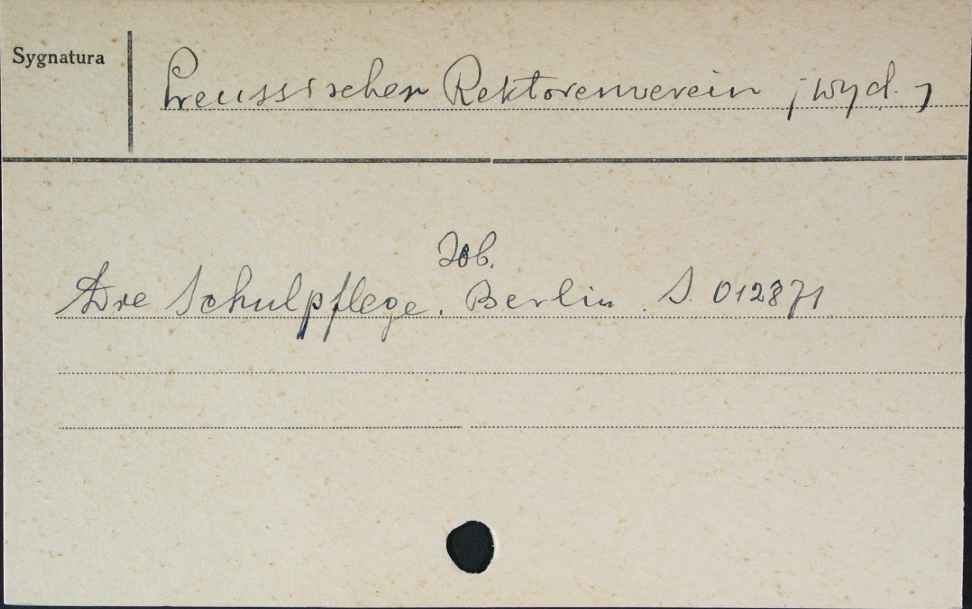 Sygnatura
Preussischer Rektorenverein [wyd.]
Zob.
Die Schulpflege. Berlin. S. 012871